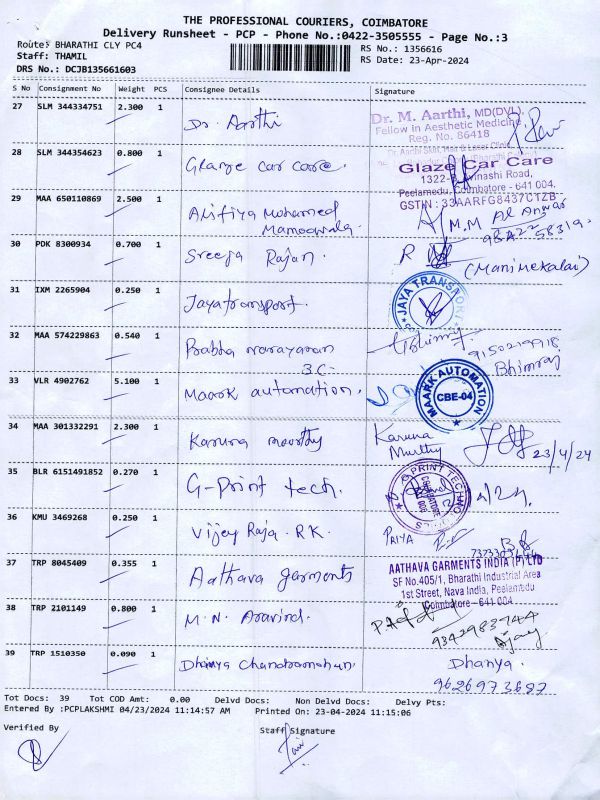 THE PROFESSIONAL COURIERS, COIMBATORE
Delivery Runsheet - PCP - Phone No.:0422-3505555 - Page No.:3
Route: BHARATHI CLY PC4
RS No.: 1356616
Staff: THAMIL
RS Date: 23-Apr-2024
DRS No.: DCJB135661603
S No Consignment No Weight PCS Consignee Details Signature
27 SLM 344334751 2.300 1 Dr Aarthi
Dr. M. Aarthi, MD(DVL),
Fellow in Aesthetic Medicine,
Reg. No. 86418
28 SLM 344354623 0.800 1 Glanze car care.
Glaze Car Care
1322- Avinashi Road,
Peelamedu, Coimbatore - 641 004.
GSTIN : 33AARFG8437C1ZB
29 MAA 650110869 2.500 1 Alifiya Mohamed
Mamoowala
M.M Al Anwar
30 PDK 8300934 0.700 1 Sreeja Rajan.
(Manimekalai)
31 IXM 2265904 0.250 1 Jayatransport.
JAYA TRANSPORT
32 MAA 574229863 0.540 1 Prabha narayanan
3C
9150219918
Bhimraj
33 VLR 4902762 5.100 1 Maark automation.
MAARK AUTOMATION
CBE-04
34 MAA 301332291 2.300 1 Karuna moorthy
Karuna
Murthy
23/4/24
35 BLR 6151491852 0.270 1 G-Print tech.
G-PRINT TECHNO
COIMBATORE
36 KMU 3469268 0.250 1 Vijey Raja. R.K.
PRIYA
37 TRP 8045409 0.355 1 Aathava garments
AATHAVA GARMENTS INDIA (P) LTD
SF No.405/1, Bharathi Industrial Area
1st Street, Nava India, Peelamedu
Coimbatore - 641 004
38 TRP 2101149 0.800 1 M.N. Aravind.
9342983744
Ajay
39 TRP 1510350 0.090 1 Dhanya Chandramohan.
Dhanya.
9626973687
Tot Docs: 39 Tot COD Amt: 0.00 Delvd Docs: Non Delvd Docs: Delvy Pts:
Entered By :PCPLAKSHMI 04/23/2024 11:14:57 AM Printed On: 23-04-2024 11:15:06
Verified By
Staff Signature